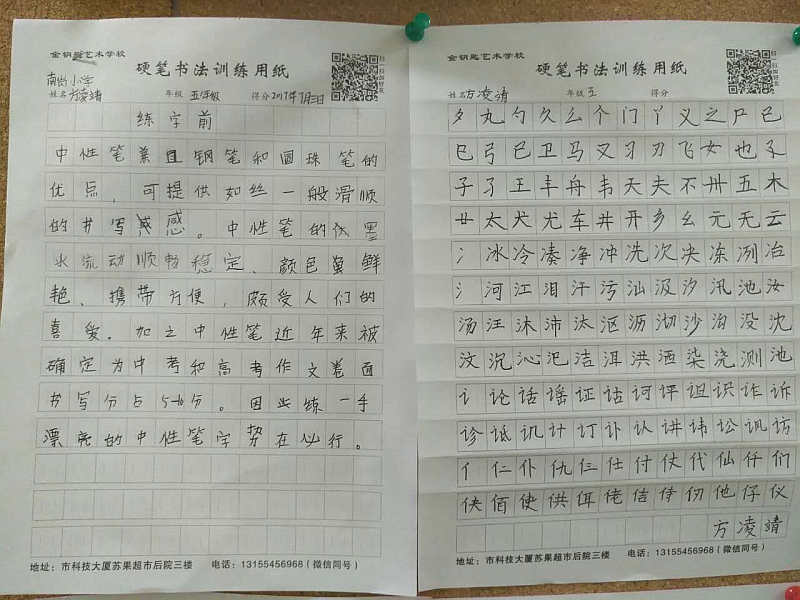 金钥匙艺术学校
硬笔书法训练用纸
扫一扫加好友
南岗小学
姓名 方凌靖 年级 五年级 得分 2017年7月三日
练字前
中性笔兼且钢笔和圆珠笔的
优点，可提供如丝一般滑顺
的书写感。中性笔的水墨
水流动顺畅稳定、颜色鲜
艳、携带方便，颇受人们的
喜爱。加之中性笔近年来被
确定为中考和高考作文卷面
书写分占5-10分。因此练一手
漂亮的中性笔字势在必行。
地址：市科技大厦苏果超市后院三楼 电话：13155456968（微信同号）
金钥匙艺术学校
硬笔书法训练用纸
扫一扫加好友
姓名 方凌靖 年级 五 得分
夕丸勺久么个门丫义之尸已
巳弓已卫马叉习刃飞女也孓
子孑王丰舟韦天夫不卅五木
廿太犬尤车井开乡幺元无云
冫冰冷凑净冲冼次决冻冽冶
氵河江泪汗污汕汲汐汛池汝
汤汪沐沛汰沤沥沏沙沟没沈
汶沉沁汜洁洱洪洒染浇测池
讠论话谣证诂诃评诅识诈诉
诊诋讥计订讣认讲讳讼讽访
亻仁仆仇仨仕付仗代仙仟们
侠佰使供佴佬佶侉仞他仔仪
方凌靖
地址：市科技大厦苏果超市后院三楼 电话：13155456968（微信同号）